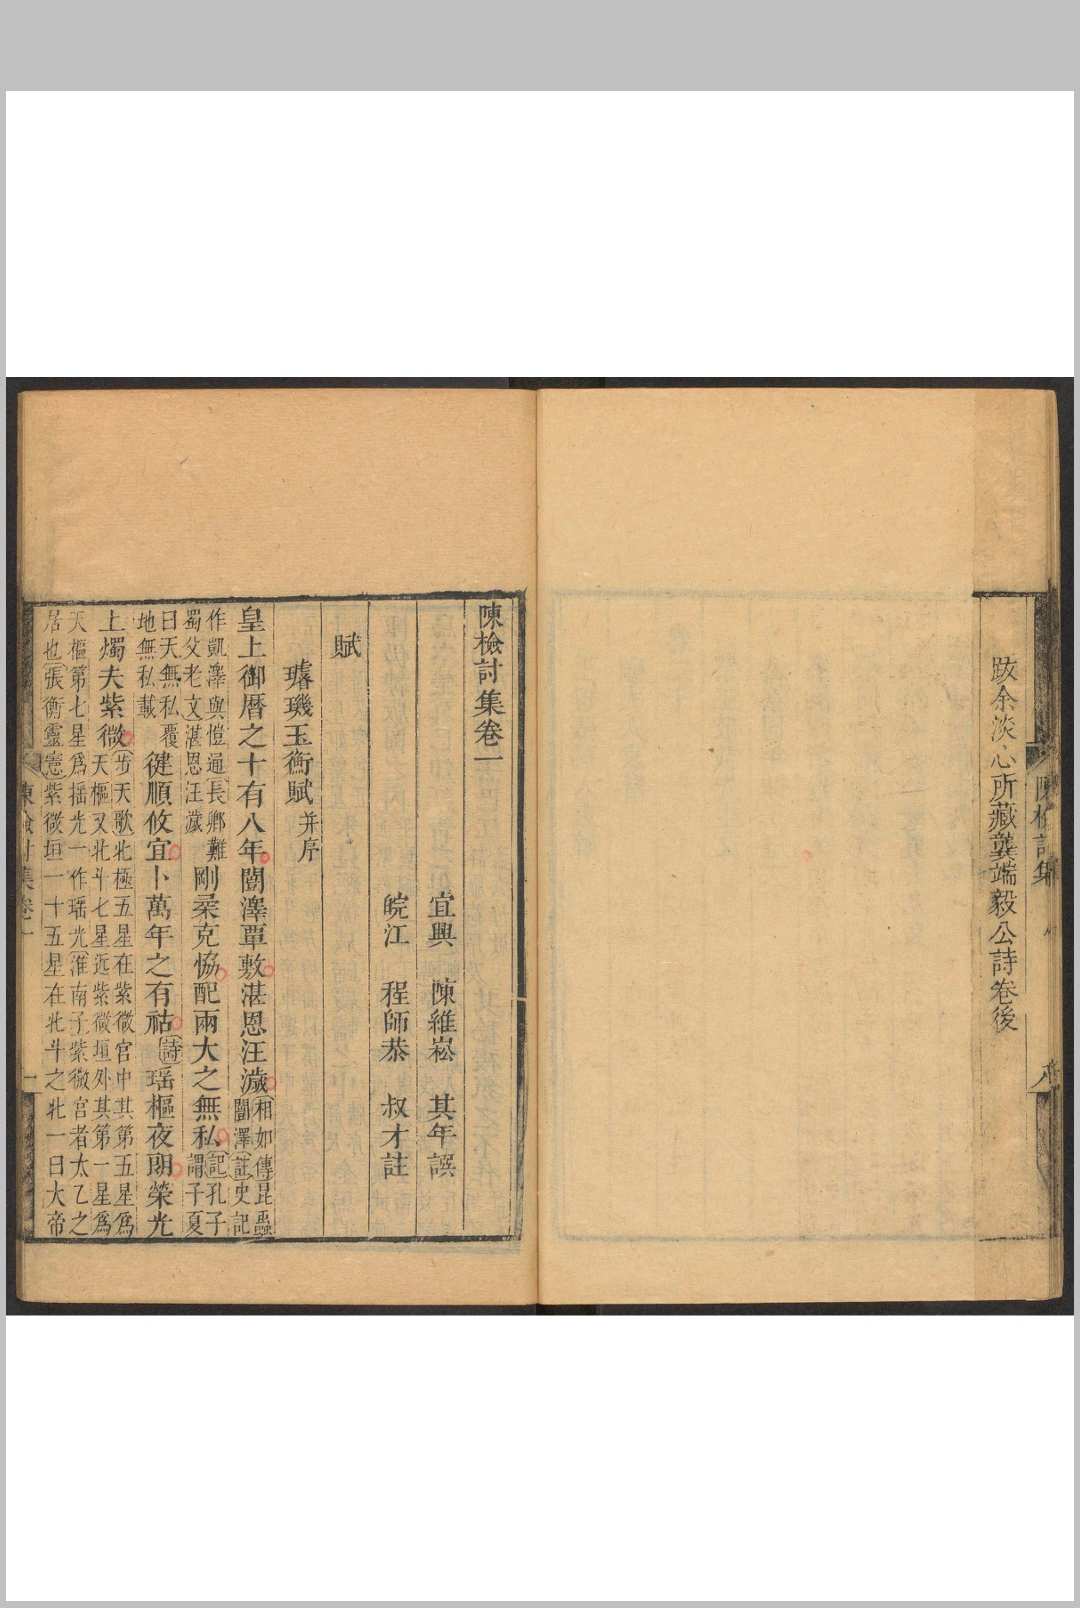 跋余淡心所藏龔端毅公詩卷後
陳檢討集
陳檢討集卷一
宜興 陳維崧 其年譔
皖江 程師恭 叔才註
賦
璿璣玉衡賦并序
皇上御曆之十有八年闓澤覃敷湛恩汪濊相如傳昆蟲
闓澤註史記
作凱澤與愷通長卿難
蜀父老文湛恩汪濊
剛柔克恊配兩大之無私記孔子
謂子夏
曰天無私覆
地無私載
健順攸宜卜萬年之有祜詩瑶樞夜朗榮光
上燭夫紫微步天歌北極五星在紫微宮中其第五星爲
天樞又北斗七星近紫微垣外其第一星爲
天樞第七星爲揺光一作瑶光淮南子紫微宮者太乙之
居也張衡靈憲紫微垣一十五星在北斗之北一曰大帝
陳檢討集卷一
一